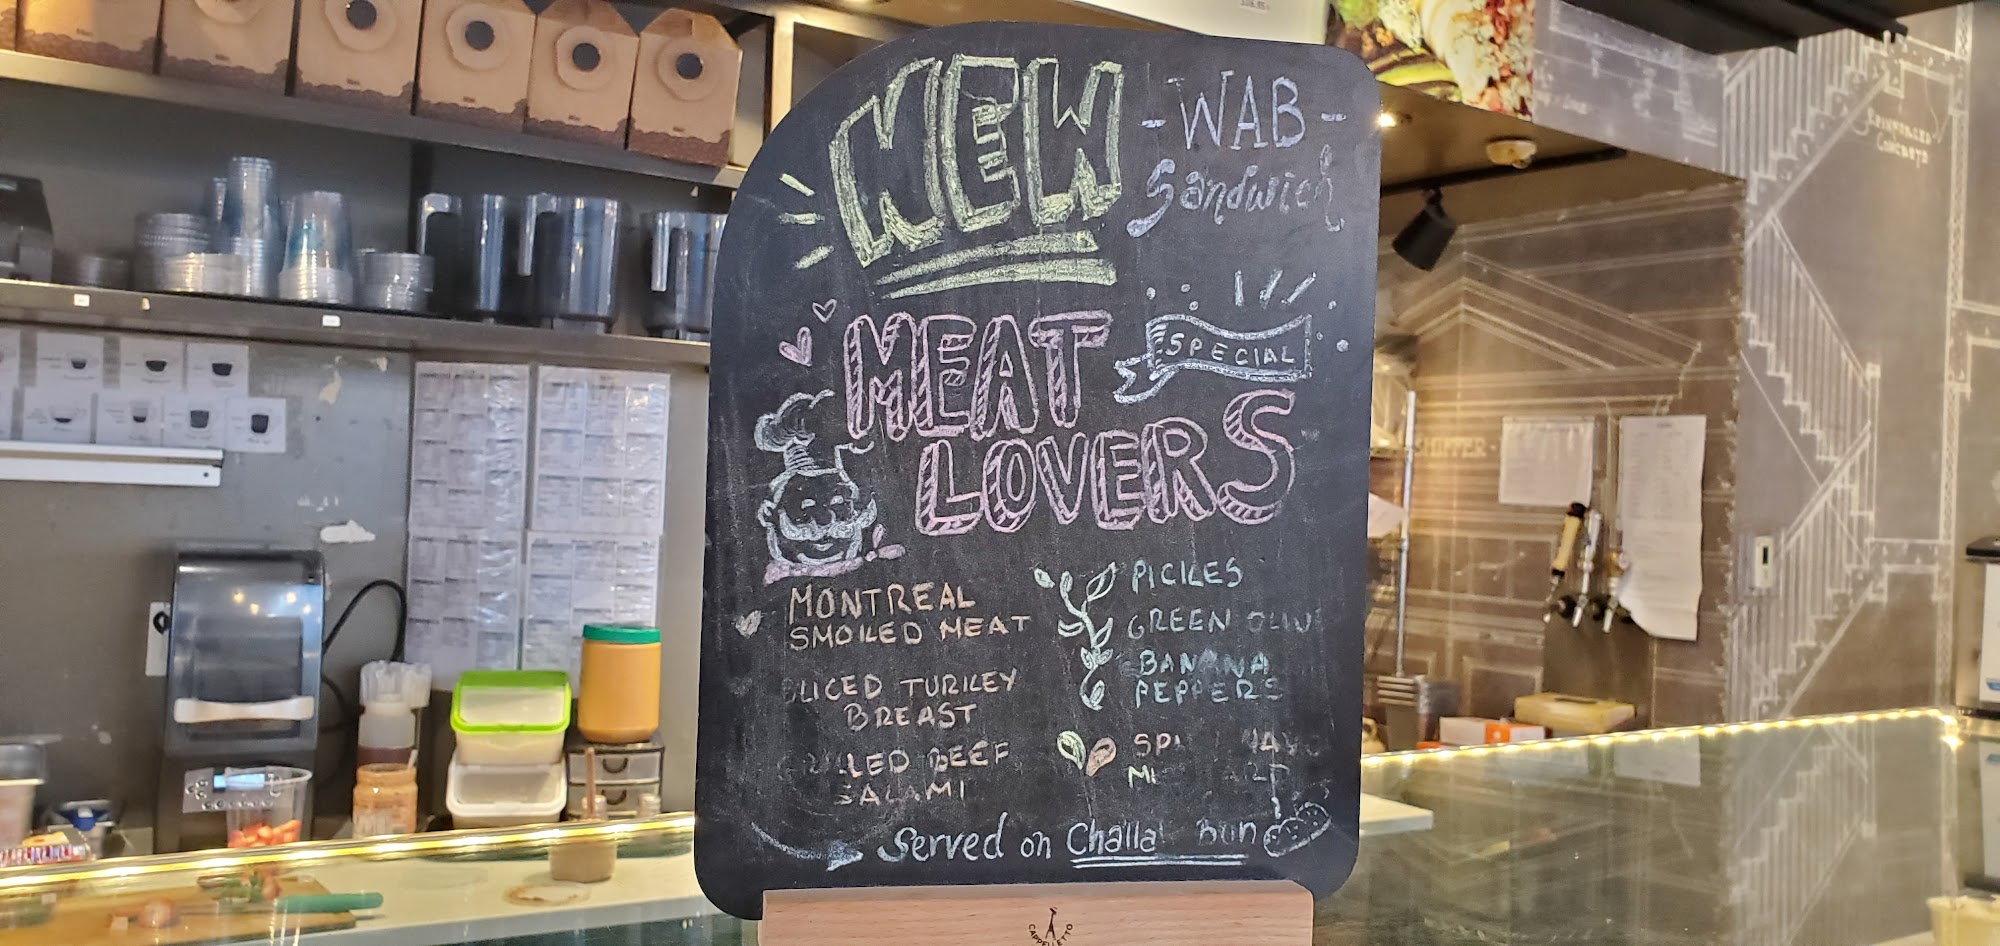 NEW
-WAB-
Sandwich
MEAT
SPECIAL
LOVERS
MONTREAL
SMOKED MEAT
SLICED TURKEY
BREAST
BEEF
SALAMI
PICKLES
GREEN
BANANA
PEPPERS
Served on Challa Bun
CAPPELLETTO
CONCRETE